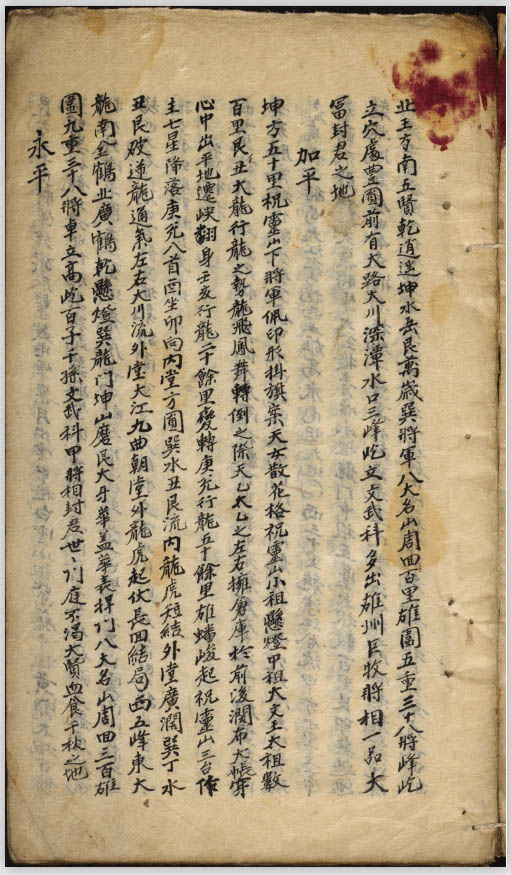 北主方南五賢乾逍遥坤水岳艮萬歲巽將軍八大名山周回百里雄圖五重三十八將峰屹
立穴處豊圓前有大路大川深潭水口三峰屹立文武科多出雄州巨牧將相一品大
冨封君之地
加平
坤方五十里祝靈山下將軍佩印形掛旗案天女散花格祝靈山小祖懸燈甲祖大文王太祖數
百里艮丑大龍行龍之勢龍飛鳳舞轉倒之際天乙太乙之左右擁倉庫於前後濶布大帳穿
心中出平地遷峽翻身壬亥行龍二千餘里變轉庚兌行龍五十餘里雄蟠峻起祝靈山三台作
主七星降落庚兌八首回坐卯向内堂方圓巽水丑艮流内龍虎短結外堂廣濶巽丁水
丑艮破逆龍通氣左右大川流外堂大江九曲朝堂外龍虎起伏長回結局西五峰東大
龍南玉鶴北廣鶴乾懸燈巽龍門坤山磨艮大牙華盖華表捍門八大名山周回三百雄
圖九重三十八將卓立高屹百子千孫文武科甲將相封君世世門庭不渴大賢血食千秋之地
永平